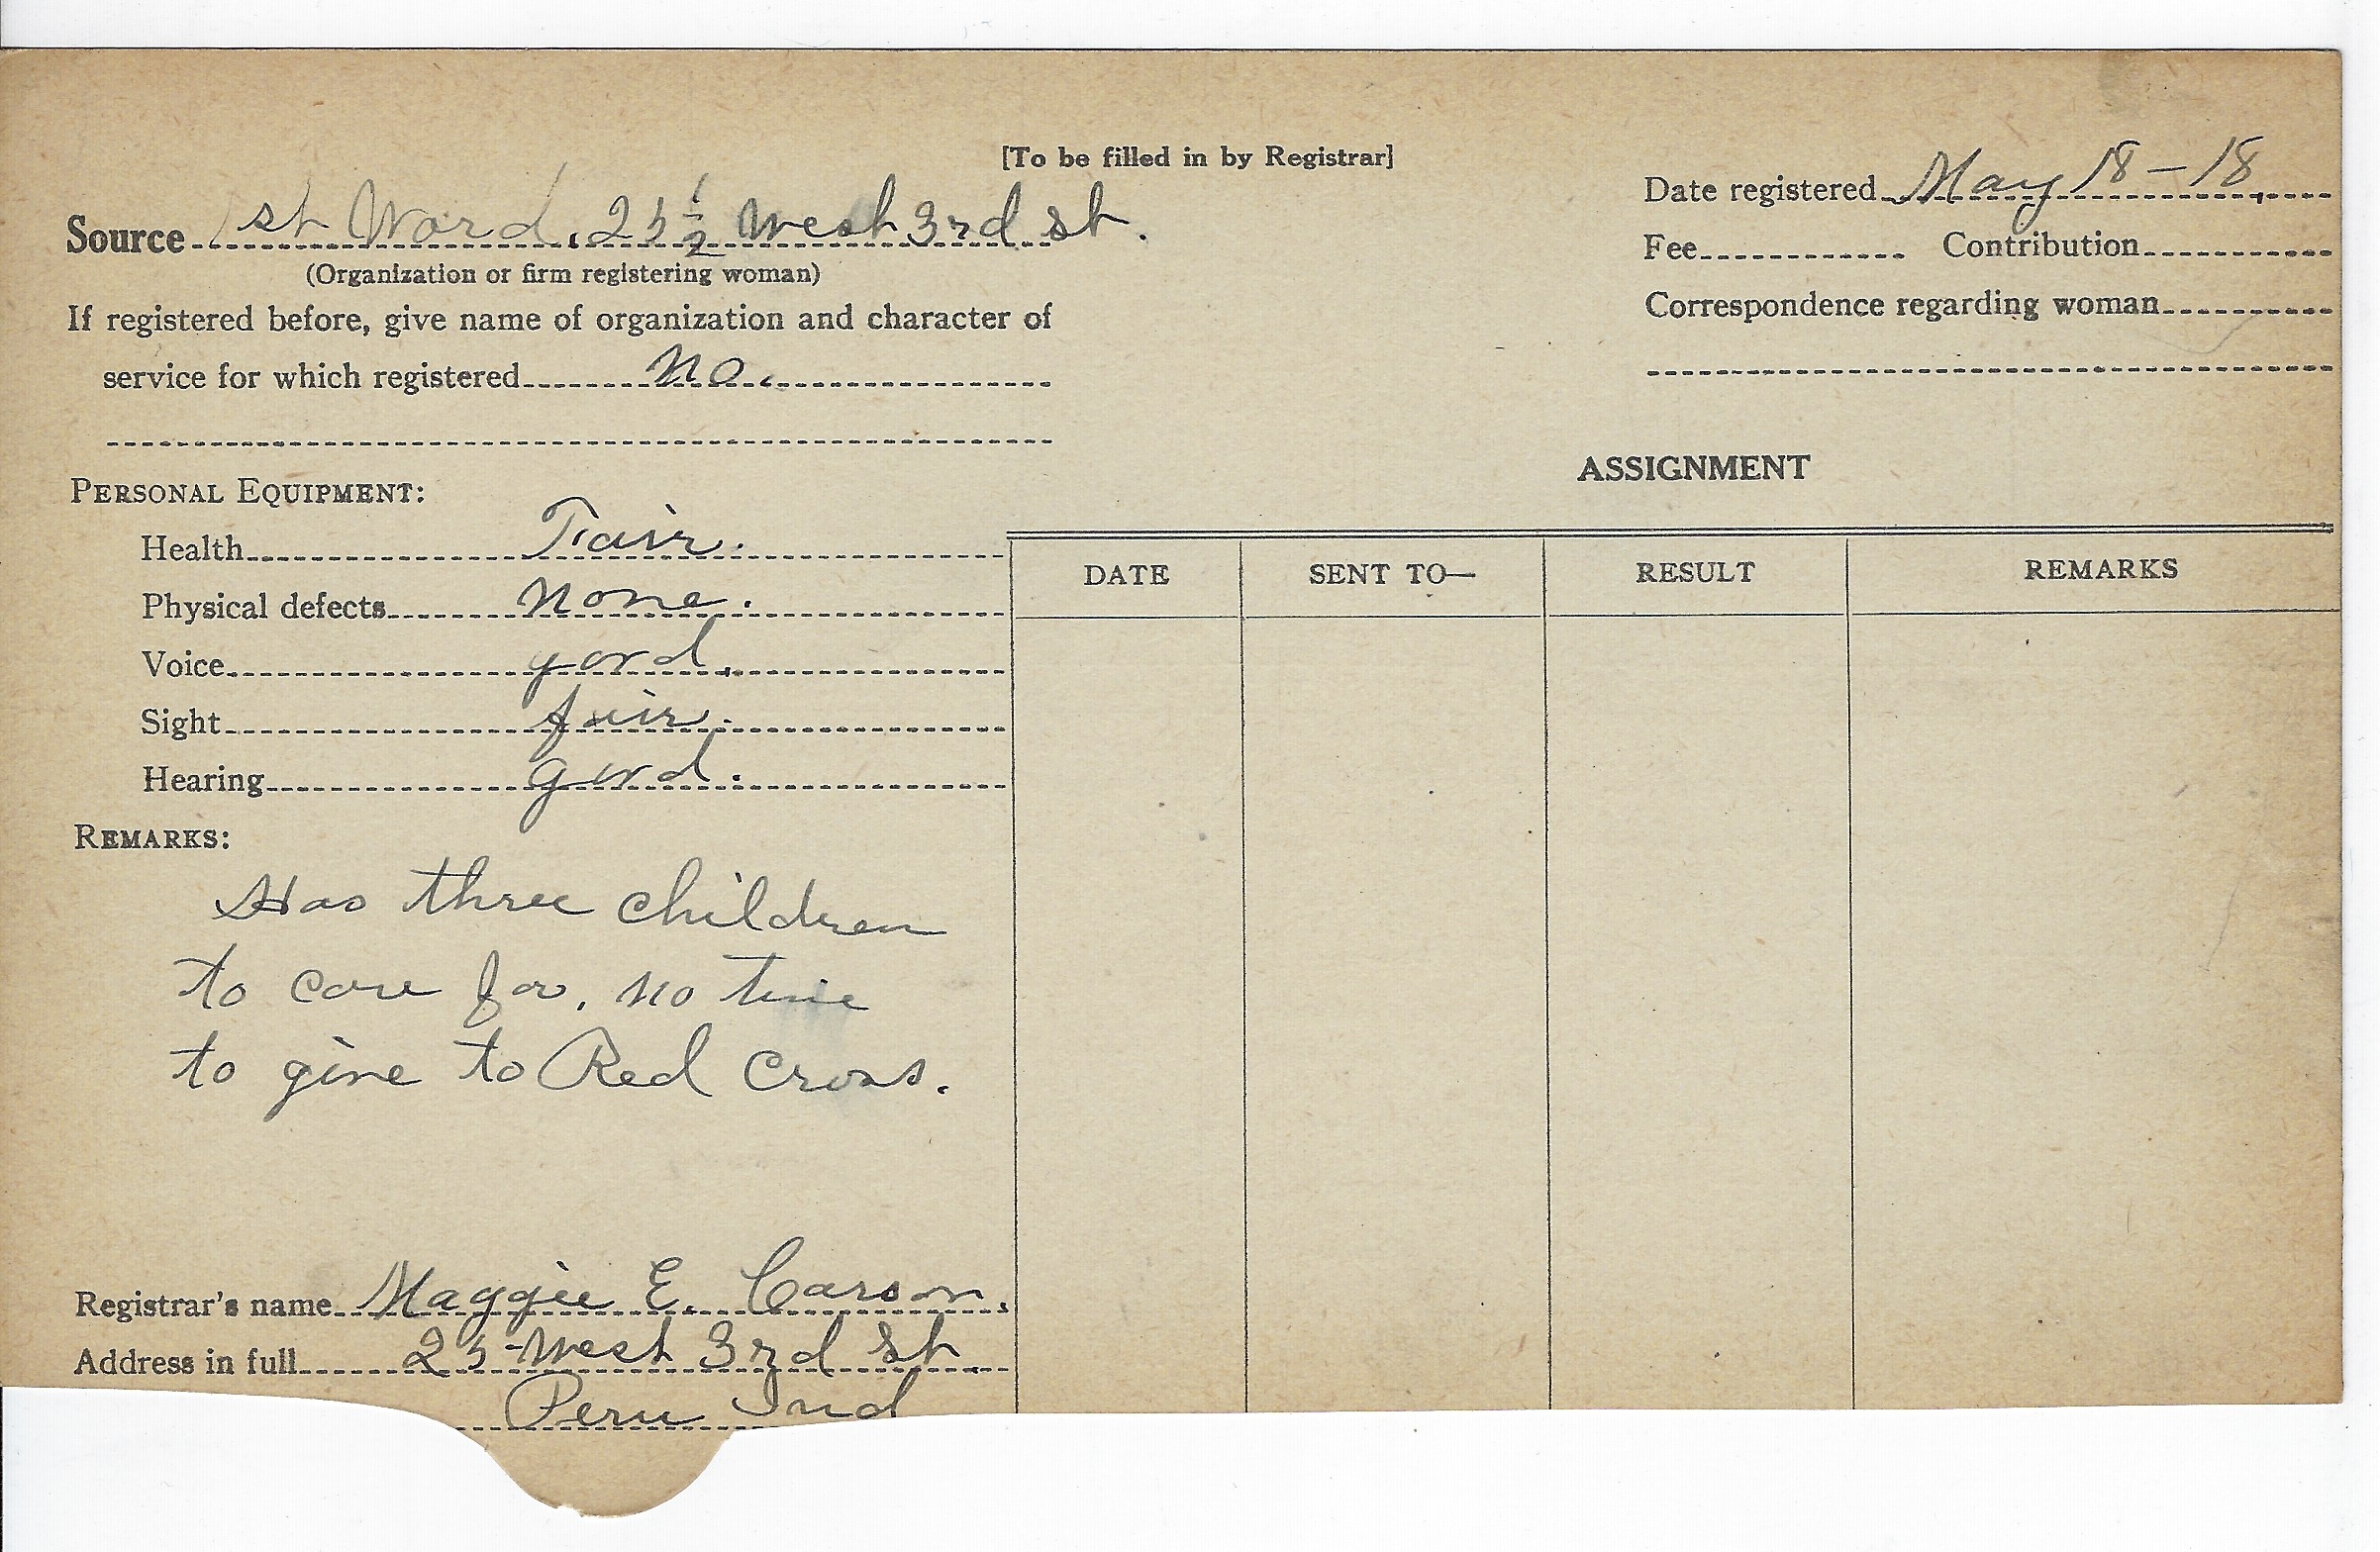 [To be filled in by Registrar]
Date registered May 18-18.
Source 1st Ward, 25 1/2 West 3rd St.
(Organization or firm registering woman)
Fee Contribution
If registered before, give name of organization and character of
Correspondence regarding woman
service for which registered No.
ASSIGNMENT
PERSONAL EQUIPMENT:
Health Fair.
Physical defects None.
Voice good.
Sight fair.
Hearing good.
DATE SENT TO— RESULT REMARKS
REMARKS:
Has three children
to care for, no time
to give to Red Cross.
Registrar's name Maggie E. Carson.
Address in full 25 West 3rd St.
Peru Ind